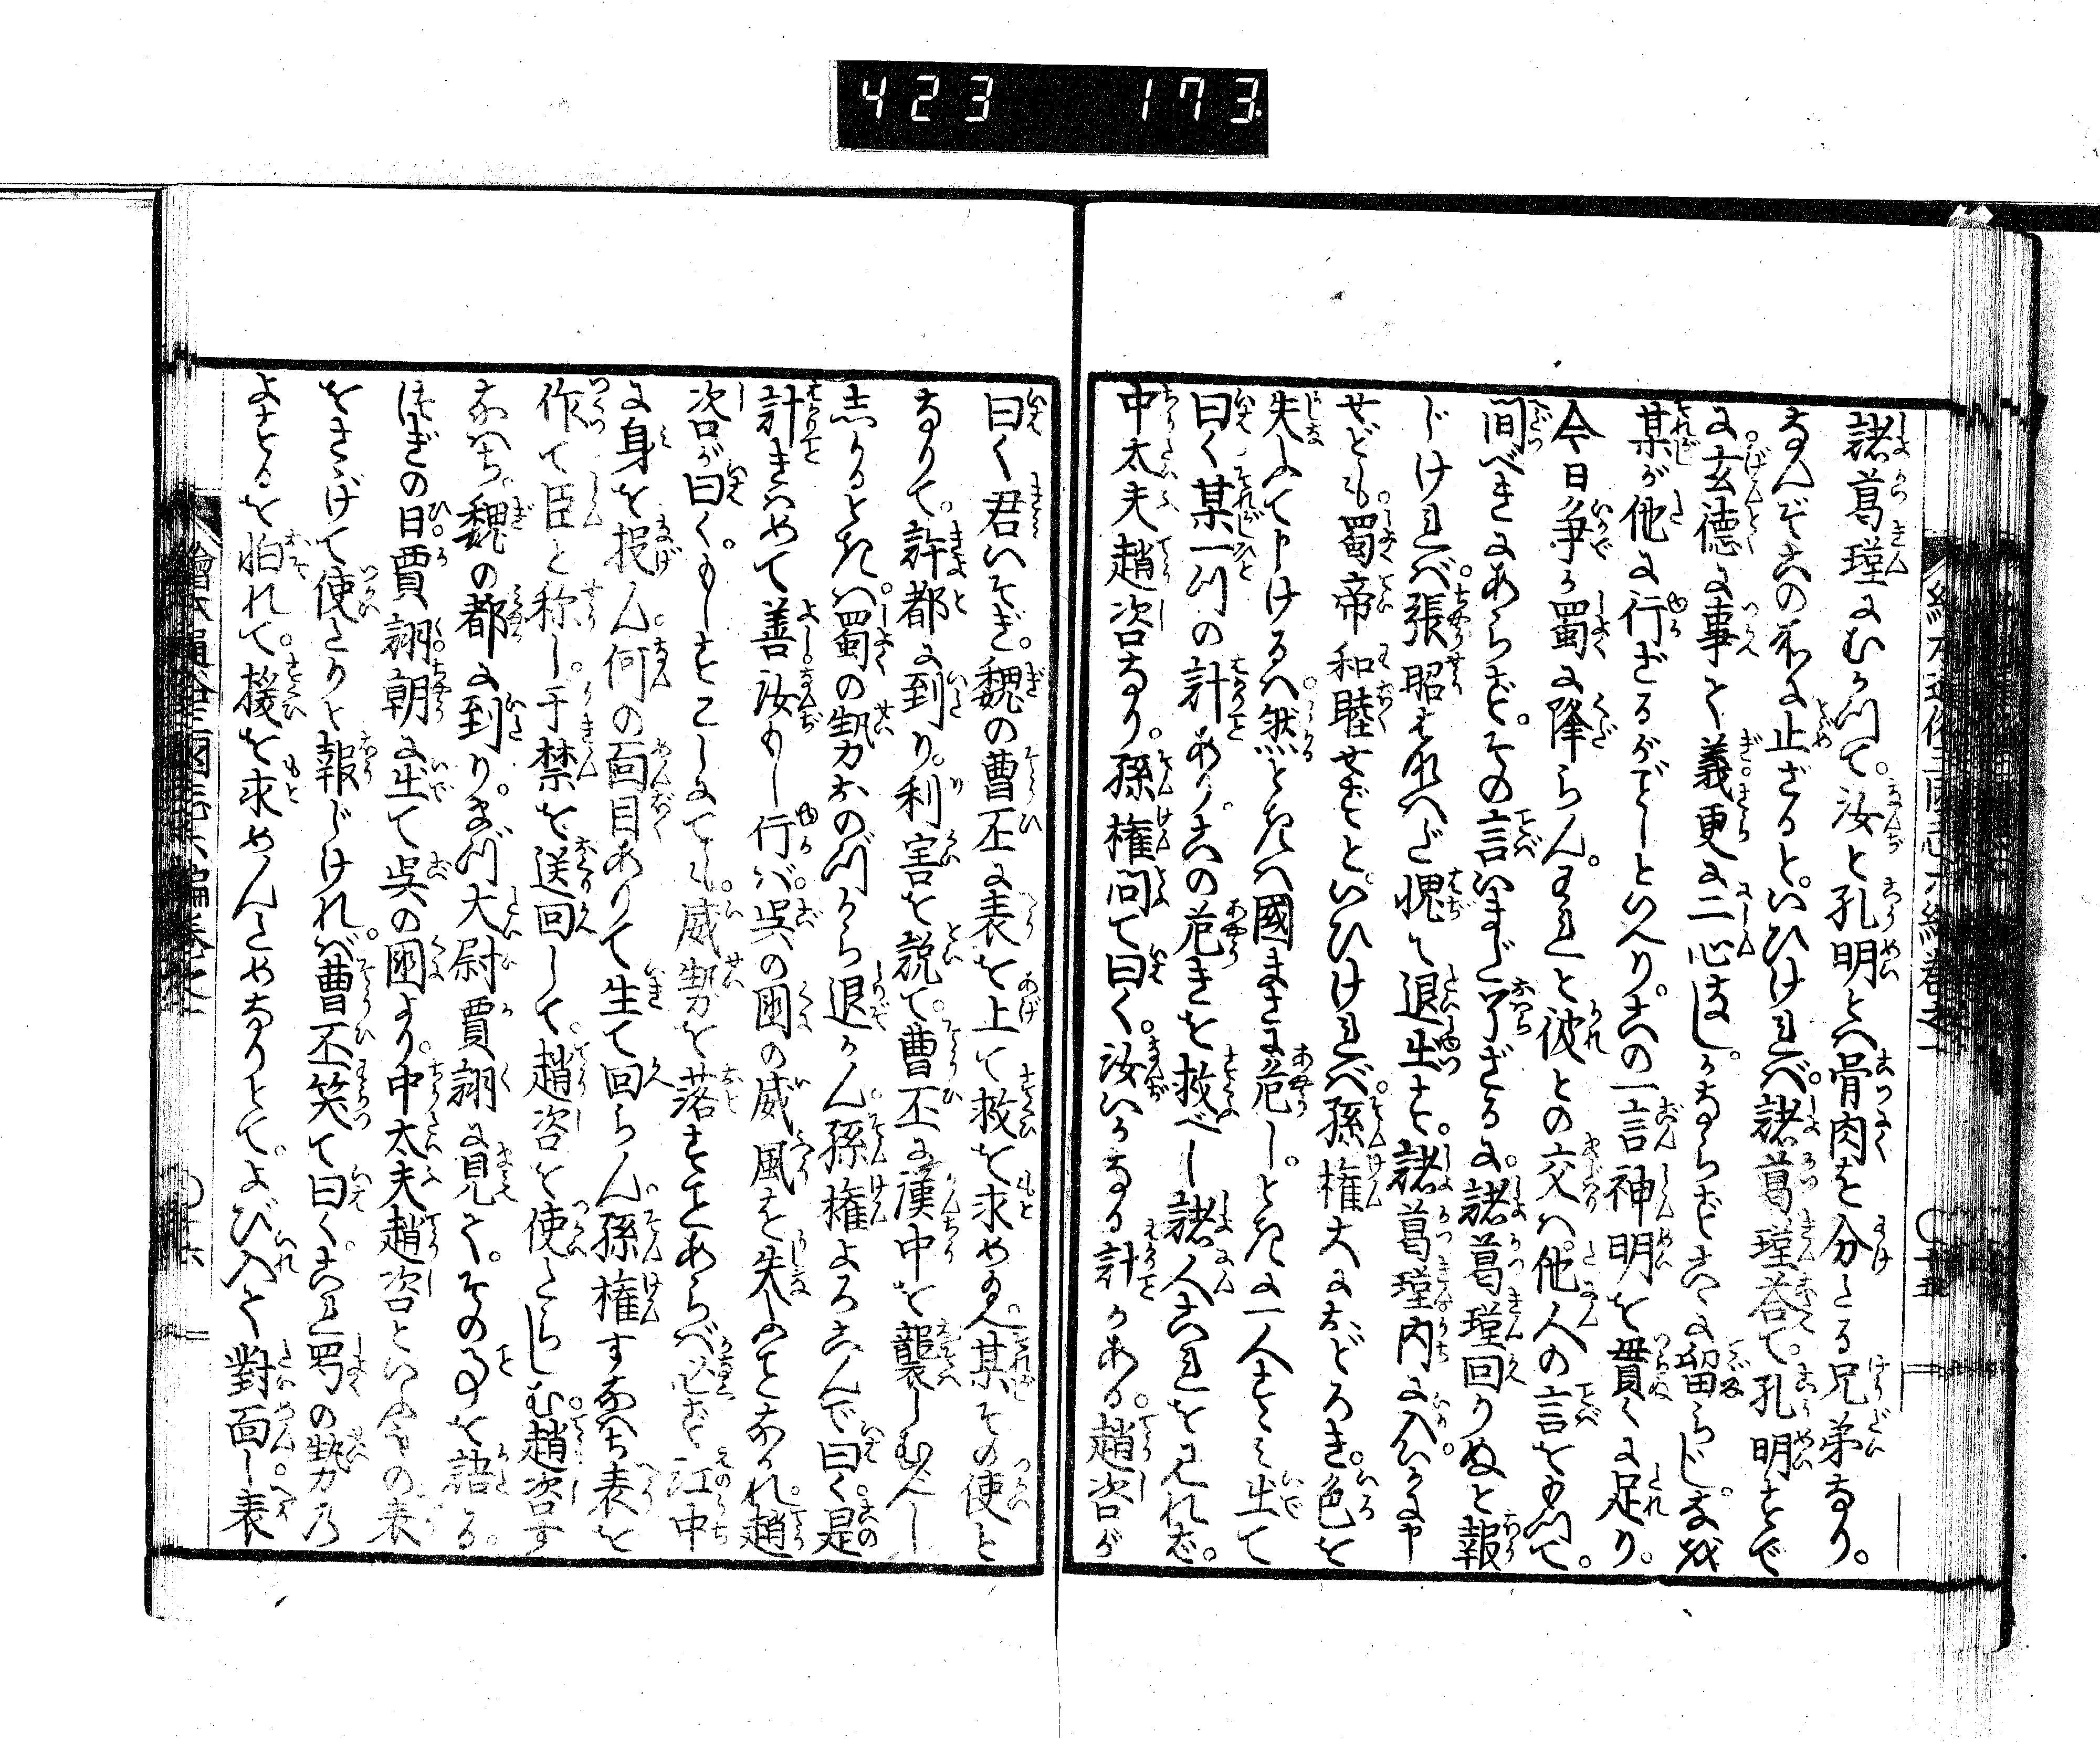 423 173
諸葛瑾にむかつて。汝と孔明とハ骨肉を分たる兄弟なり。
なんぞ其の不に止ざるといひけれバ。諸葛瑾答て。孔明すで
に玄徳に事て義更に二心なし。かならずこゝに留らじ。なほ
某が他に行ざるがごとしといへり。この一言神明を貫くに足れり。
今日争か蜀に降らん。われと彼との交ハ。他人の言をもつて。
間べきにあらずと。その言いまだ了ざるに。諸葛瑾回りぬと報
じけれバ。張昭これハと愧て退出す。諸葛瑾内に入。かさね申
せども蜀帝和睦せずといひけれバ。孫権大におどろき。色を
失ふて申けるハ。然ときハ國まさに危し。ときに一人すゝみ出て
曰く某一つの計あり。この危きを救べし。諸人これを見れバ。
中太夫趙咨なり。孫権問て曰く。汝いかなる計かある。趙咨が
曰く君いそぎ。魏の曹丕に表を上て救を求め給へ。某その使と
なりて。許都に到り。利害を説て。曹丕に漢中を襲しむべし
志かるときハ。蜀の勢おのづから退かん。孫権よろこんで曰く。是
計きハめて善汝もし行バ。呉の國の威風を失ふことなかれ。趙
咨が曰く。もしすこしにても。威勢を落すことあらバ必ず江中
に身を投ん。何の面目ありて生て回らん。孫権すなハち表を
作て臣と称し。于禁を送回して。趙咨を使たらしむ。趙咨す
なハち。魏の都に到り。まづ大尉賈詡に見て。その事を語る。
次ぎの日。賈詡朝に出て呉の國より。中太夫趙咨といふもの表
をさゝげて使たりと報じけれバ。曹丕笑て曰く。これ蜀の勢乃
よするを怕れて。援を求めんためなりとて。よび入て對面し表